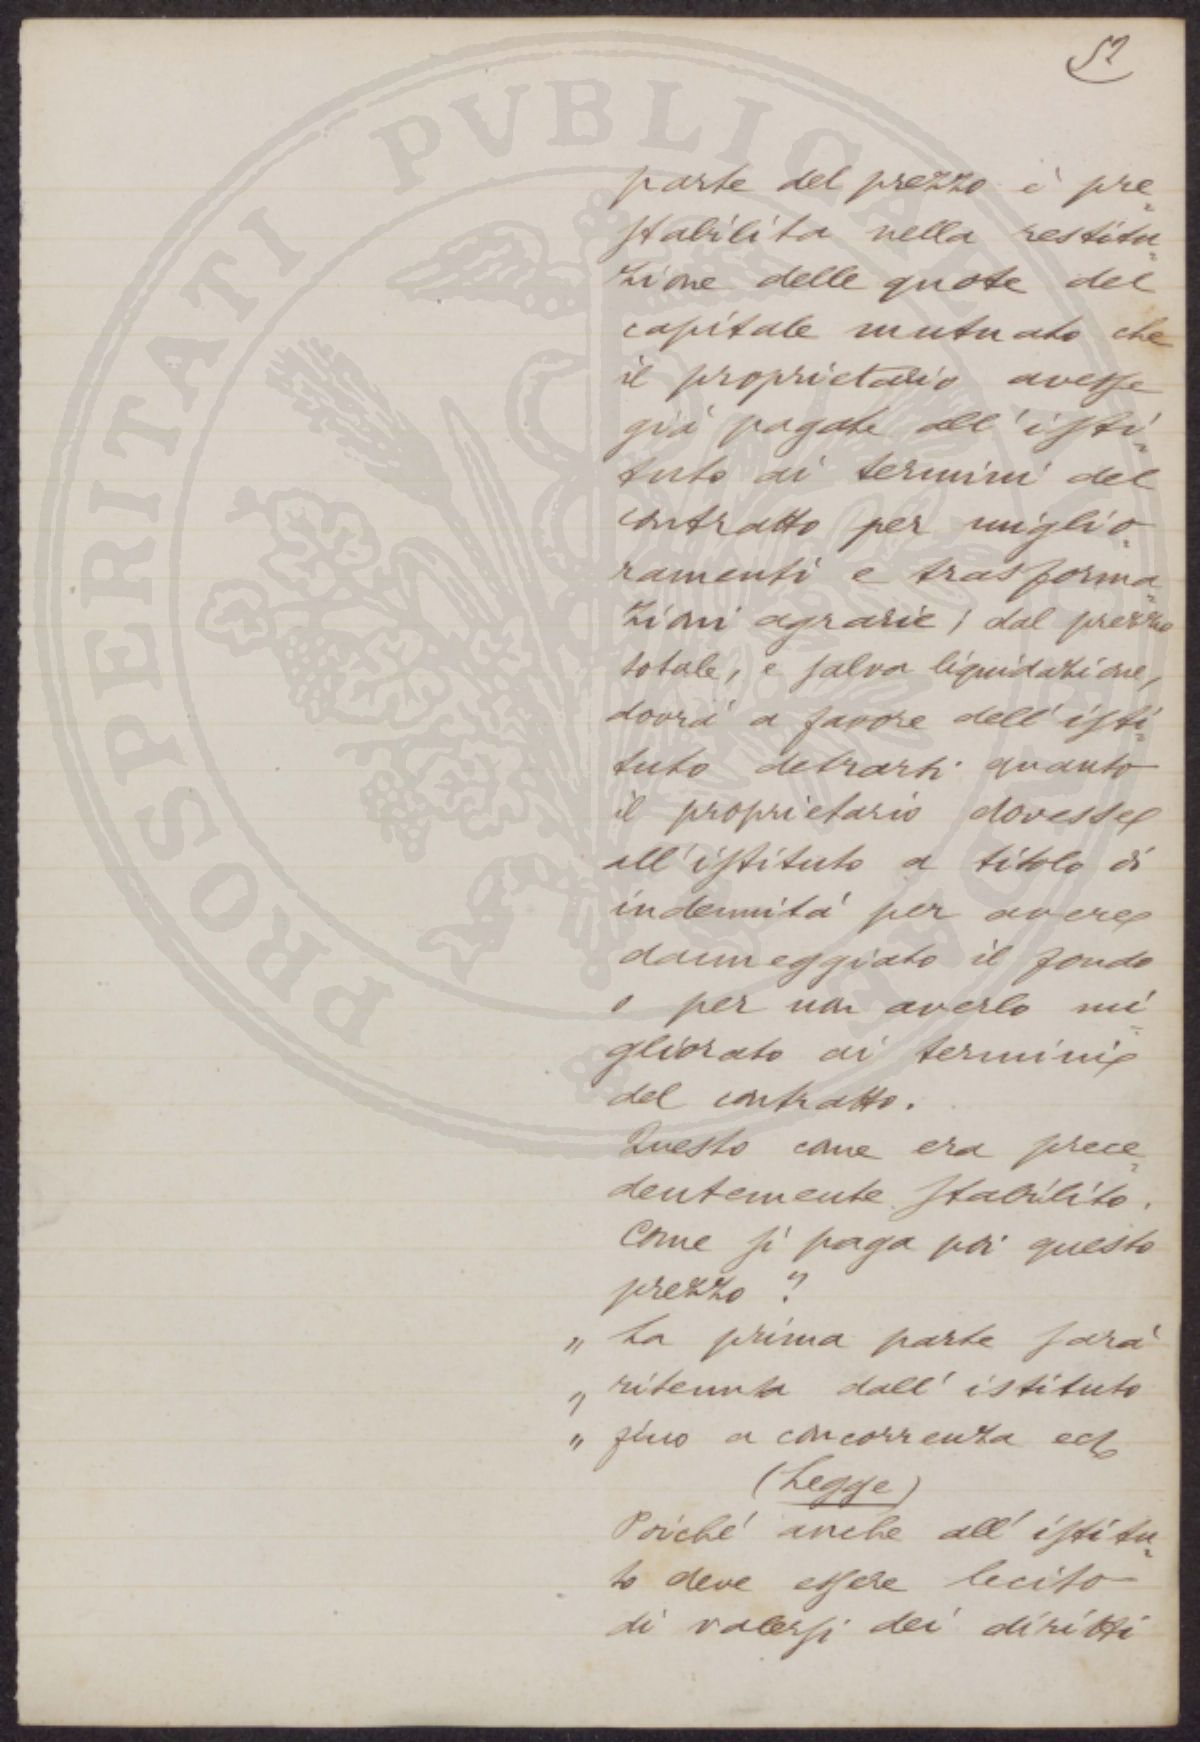 52
PROSPERITATI PVBLICAE
parte del prezzo è pre=
stabilita nella restitu=
zione delle quote del
capitale mutuato che
il proprietario avesse
già pagate all'isti=
tuto ai termini del
contratto per miglio=
ramenti e trasforma=
zioni agrarie; dal prezzo
totale, e salva liquidazione,
dovrà a favore dell'isti=
tuto detrarsi quanto
il proprietario dovesse
all'istituto a titolo di
indennità per avere
danneggiato il fondo
o per non averlo mi=
gliorato ai termini
del contratto.
Questo come era prece=
dentemente stabilito.
Come si paga poi questo
prezzo?
„ La prima parte sarà
„ ritenuta dall'istituto
„ fino a concorrenza ecc
(Legge)
Poiché anche all'istitu=
to deve essere lecito
di valersi dei diritti